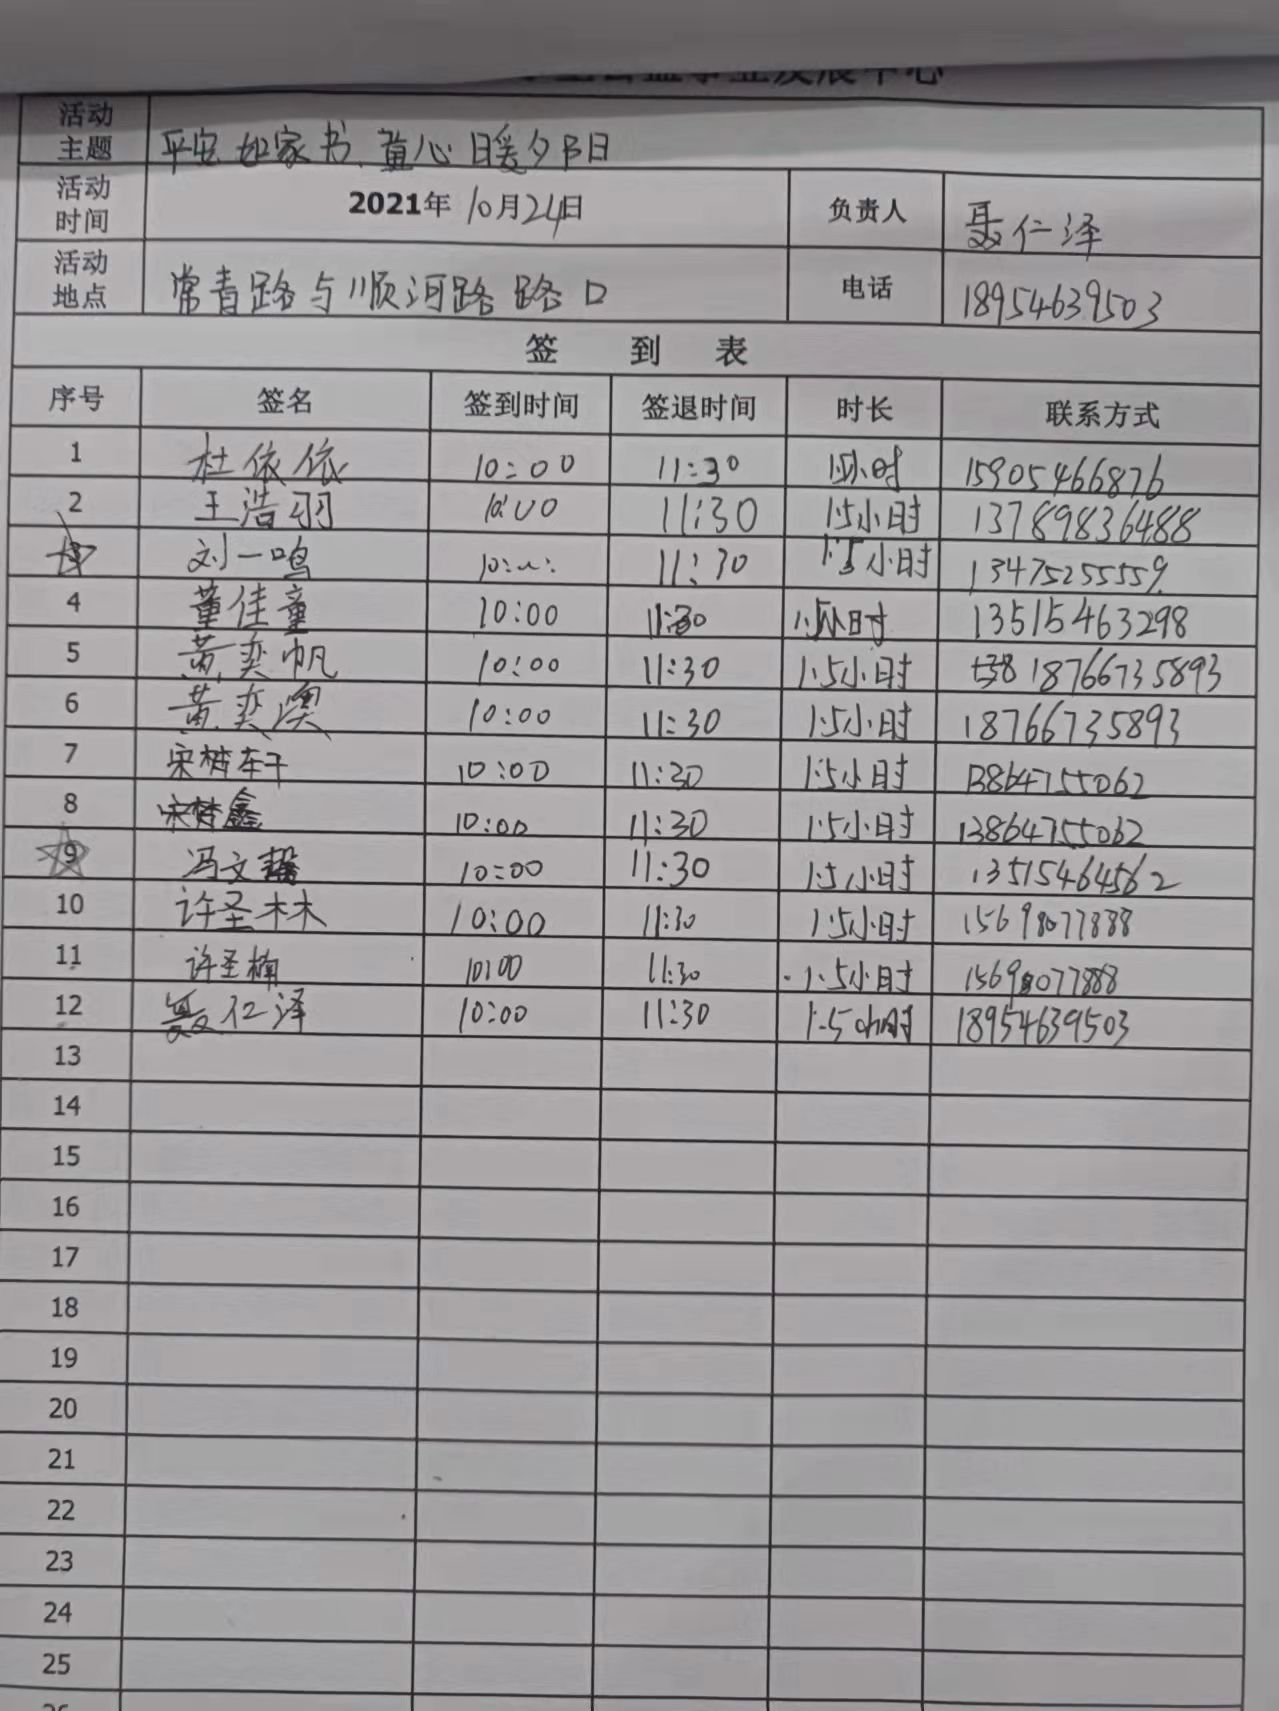 活动主题 平安如家书、童心暖夕阳
活动时间 2021年10月24日 负责人 聂仁泽
活动地点 常青路与顺河路路口 电话 18954639503
签 到 表
序号 签名 签到时间 签退时间 时长 联系方式
1 杜依依 10:00 11:30 1.5小时 15905466876
2 王浩羽 10:00 11:30 1.5小时 13789836488
3 刘一鸣 11:30 1.5小时 13475255559
4 董佳童 10:00 11:30 1.5小时 13515463298
5 黄奕帆 10:00 11:30 1.5小时 18766735893
6 黄奕澳 10:00 11:30 1.5小时 18766735893
7 宋梦轩 10:00 11:30 1.5小时 13864755062
8 宋梦鑫 10:00 11:30 1.5小时 13864755062
9 冯文 10:00 11:30 1.5小时 13515464562
10 许圣林 10:00 11:30 1.5小时 15698077888
11 许圣楠 10:00 11:30 1.5小时 15698077888
12 聂仁泽 10:00 11:30 1.5小时 18954639503
13
14
15
16
17
18
19
20
21
22
23
24
25